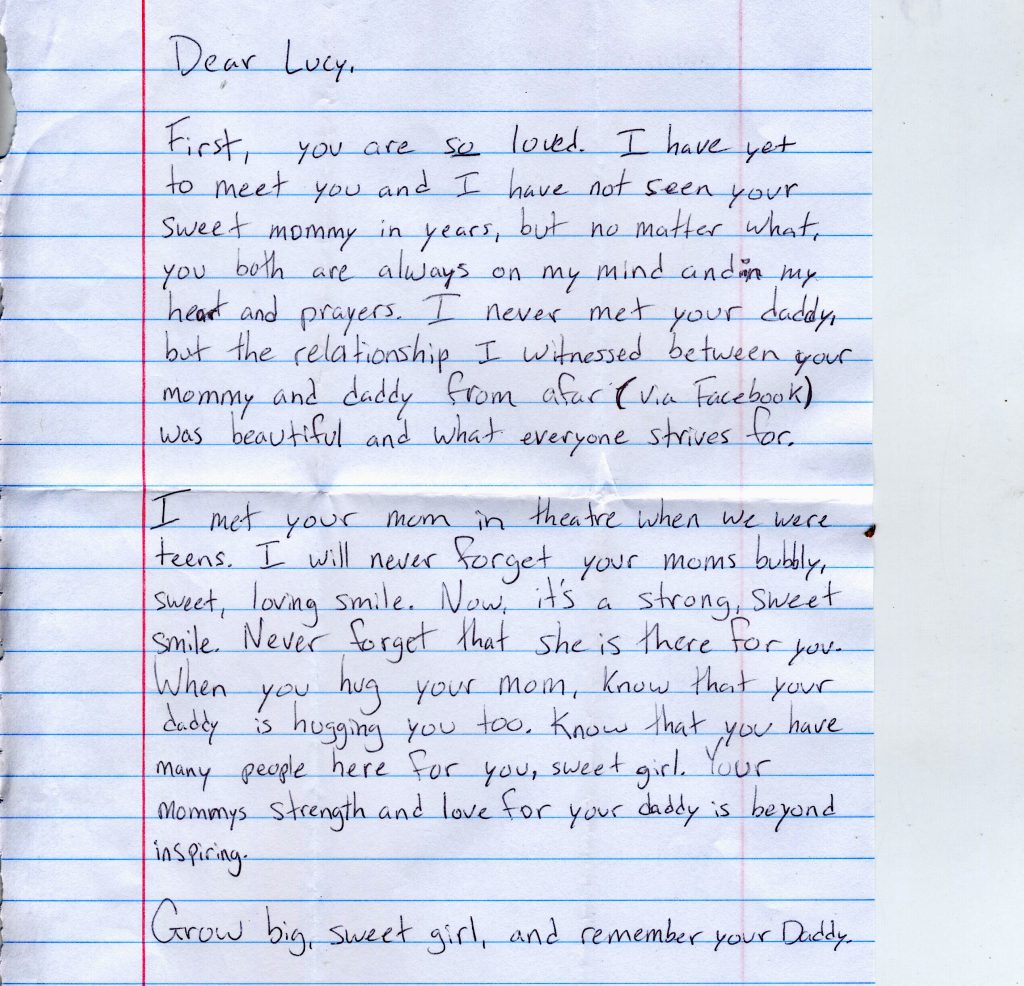 Dear Lucy,
First, you are so loved. I have yet
to meet you and I have not seen your
sweet mommy in years, but no matter what,
you both are always on my mind and in my
heart and prayers. I never met your daddy,
but the relationship I witnessed between your
mommy and daddy from afar (via Facebook)
was beautiful and what everyone strives for.
I met your mom in theatre when we were
teens. I will never forget your moms bubbly,
sweet, loving smile. Now, it's a strong, sweet
smile. Never forget that she is there for you.
When you hug your mom, know that your
daddy is hugging you too. Know that you have
many people here for you, sweet girl. Your
mommys strength and love for your daddy is beyond
inspiring.
Grow big, sweet girl, and remember your Daddy.